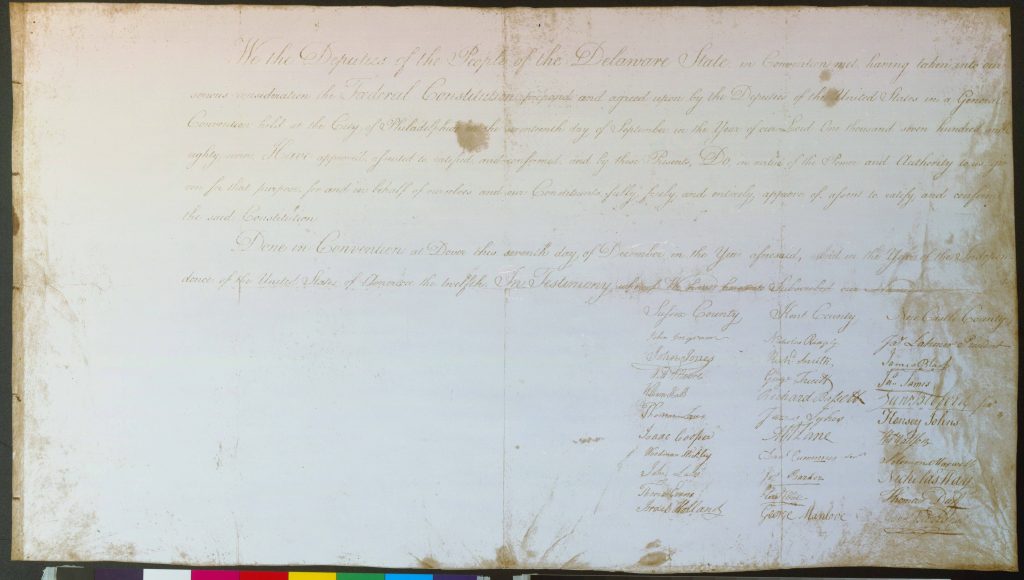 We the Deputies of the People of the Delaware State, in Convention met, having taken into our
serious consideration the Federal Constitution proposed and agreed upon by the Deputies of the United States in a General
Convention held at the City of Philadelphia on the seventeenth day of September in the Year of our Lord One thousand seven hundred and
eighty seven, Have approved, assented to, ratified, and confirmed, and by these Presents, Do, in virtue of the Power and Authority to us
given for that purpose, for and in behalf of ourselves and our Constituents, fully, freely, and entirely approve of, assent to, ratify, and confirm
the said Constitution.
Done in Convention at Dover this seventh day of December, in the Year aforesaid, and in the Year of the Indepen
dence of the United States of America the twelfth. In Testimony whereof We have hereunto Subscribed our
Sussex County Kent County New Castle County
John Ingram Nicholas Ridgely Jas Latimer President
John Jones Richd Smith James Black
Wm Moore George Truitt Jno James
William Hall Richard Bassett Gunning Bedford
Thomas Laws James Sykes Kensey Johns
Isaac Cooper
Woodman Stokley Danl Cummins Solomon Maxwell
John Laws Jos Barker Nicholas Way
Thomas Evans Thomas Duff
Israel Holland George Manlove